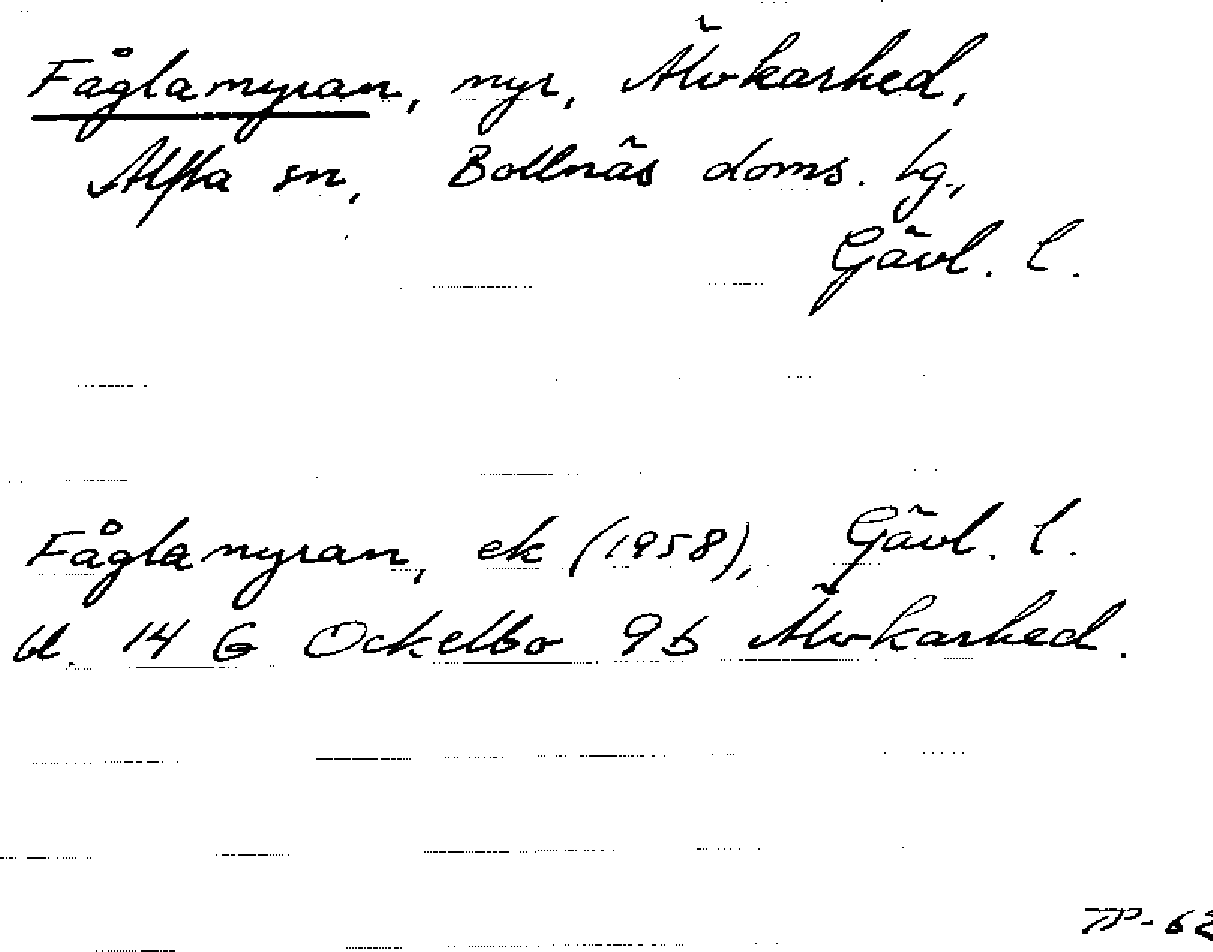 Fåglamyran, myr, Älvkarhed,
Alfta sn, Bollnäs doms. tg.,
Gävl. l.
Fåglamyran, ek (1958), Gävl. l.
bl. 14 G Ockelbo 9b Älvkarhed.
TP-62